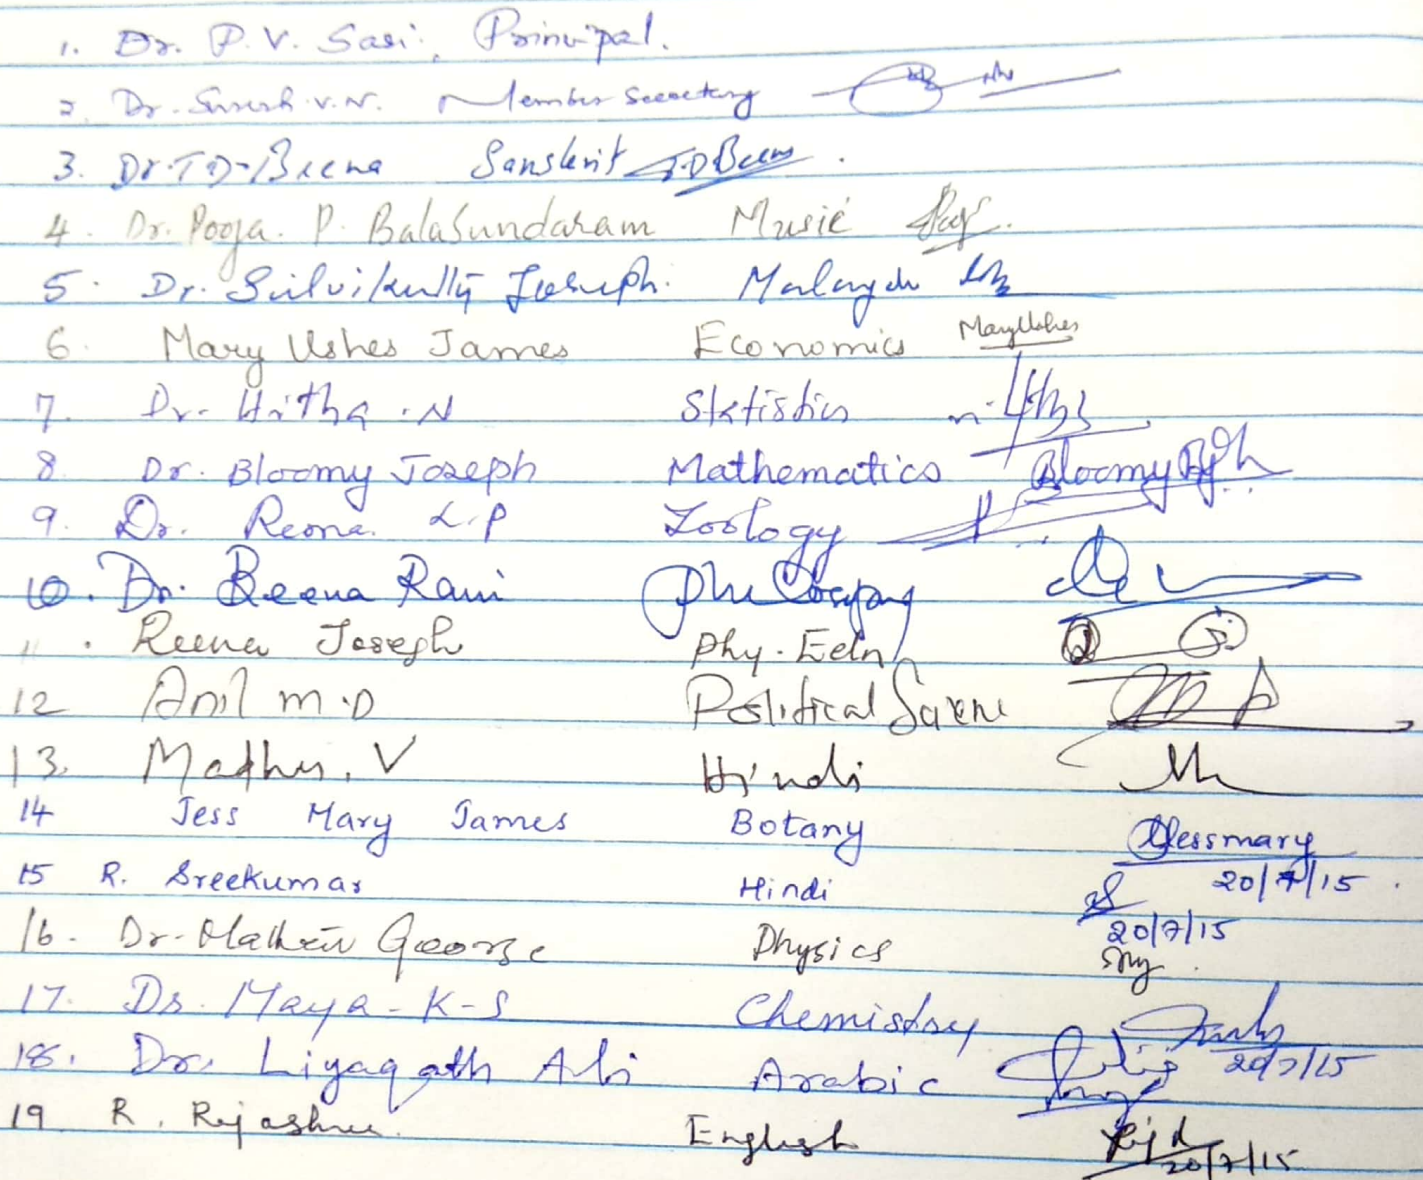 1. Dr. P.V. Sasi, Principal.
2. Dr. Suresh.V.N. Member Secretary
3. Dr.T.D-Beena Sanskrit T.D Beena.
4. Dr. Pooja. P. Balasundaram Music
5. Dr. Silvikutty Joseph. Malayalam
6. Mary Ushes James Economics MaryUshes
7. Dr. Hitha.N Statistics
8. Dr. Bloomy Joseph Mathematics Bloomy
9. Dr. Reena. L.P Zoology
10. Dr. Beena Rani Philosophy
11. Reena Joseph Phy. Eeln
12 Anil M.D Political Science
13. Madhu. V Hindi
14 Jess Mary James Botany Jessmary
15 R. Sreekumar Hindi 20/7/15
16. Dr. Mathew George Physics 20/7/15
17. Dr. Maya-K-S Chemistry
18. Dr. Liyaqath Ali Arabic 20/7/15
19 R. Rajashree English 20/7/15